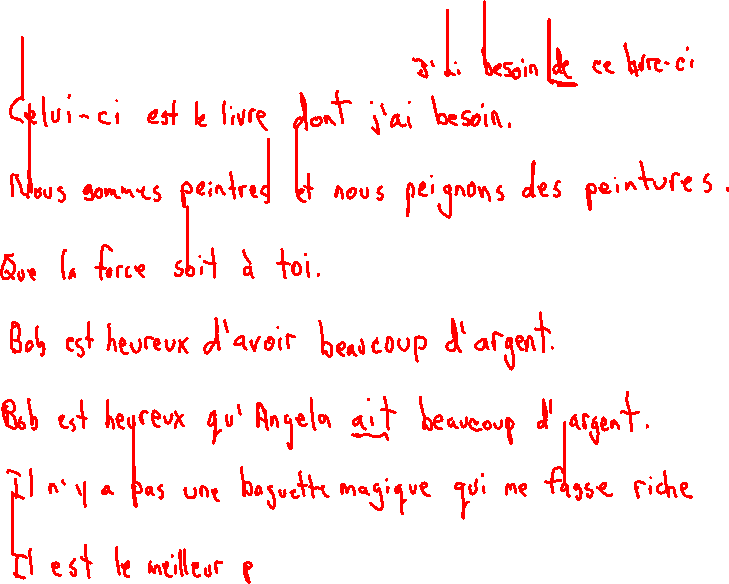 J'ai besoin de ce livre-ci
Celui-ci est le livre dont j'ai besoin.
Nous sommes peintres et nous peignons des peintures.
Que la force soit à toi.
Bob est heureux d'avoir beaucoup d'argent.
Bob est heureux qu'Angela ait beaucoup d'argent.
Il n'y a pas une baguette magique qui me fasse riche
Il est le meilleur p